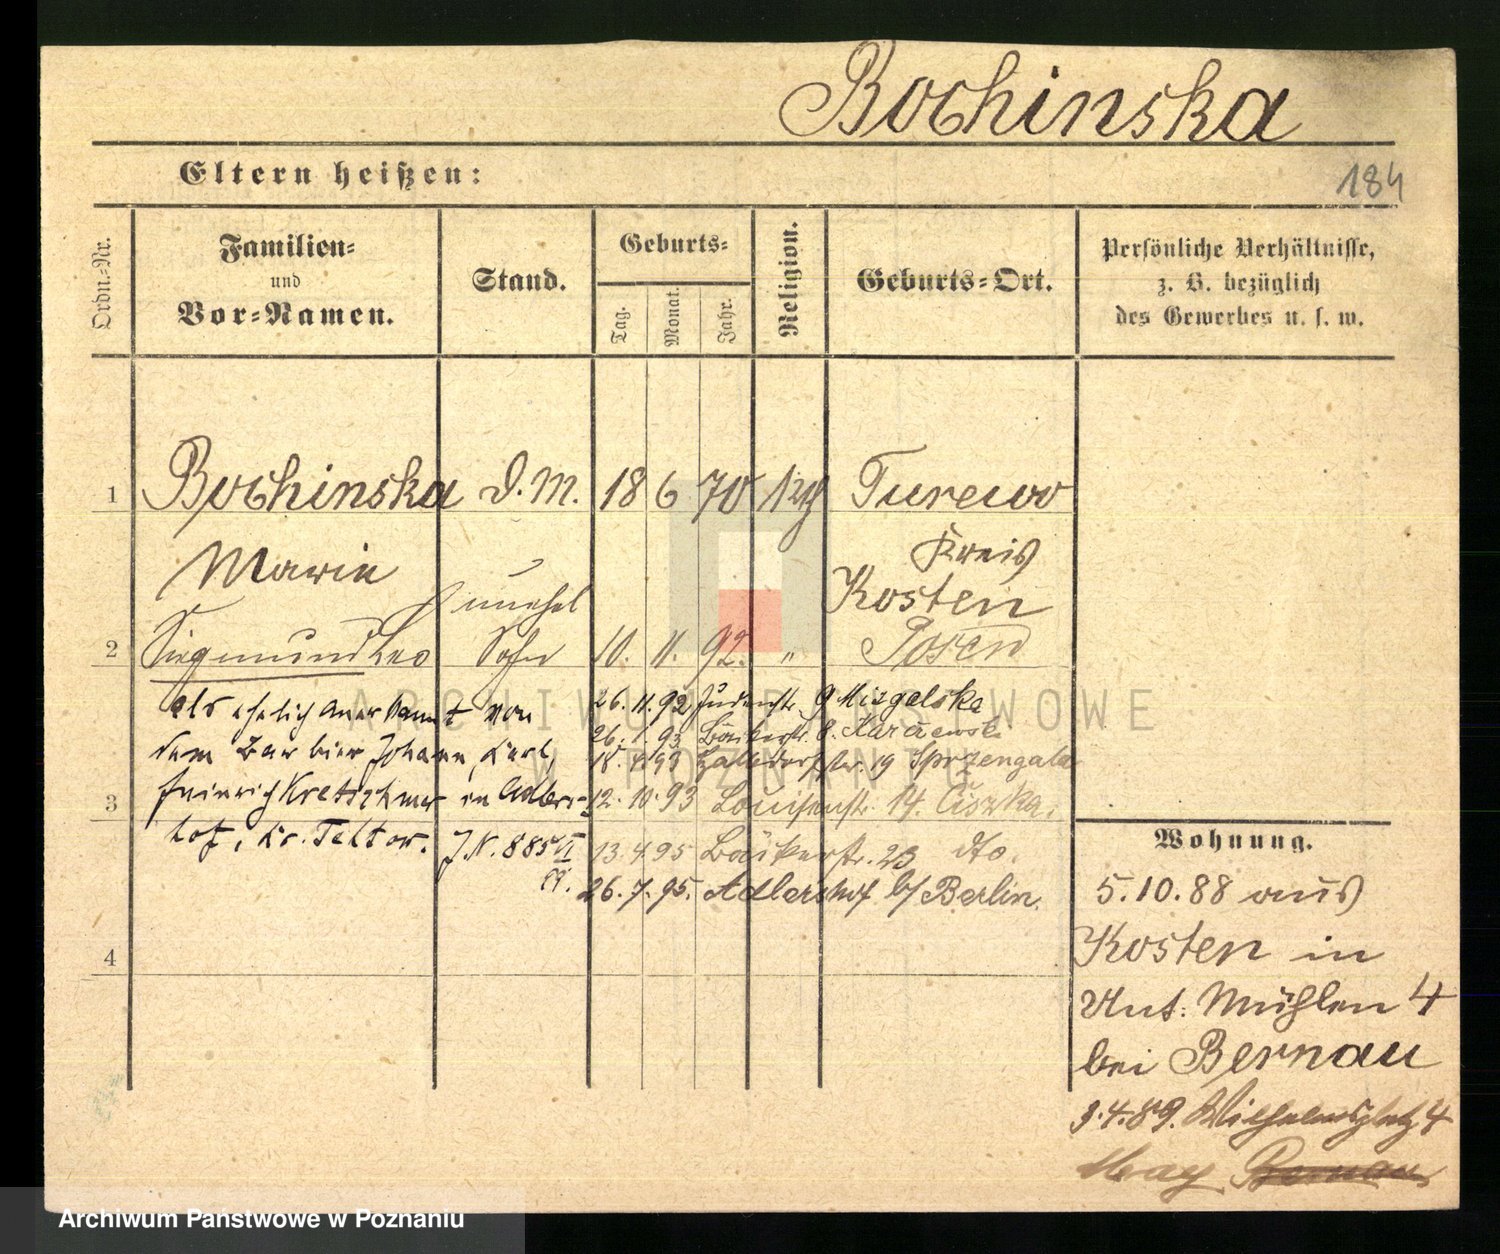 Bochinska
184
Eltern heißen:
Ordn.-Nr.
Familien-
und
Vor-Namen.
Stand.
Geburts-
Tag.
Monat.
Jahr.
Religion.
Geburts-Ort.
Persönliche Verhältnisse,
z. B. bezüglich
des Gewerbes u. s. w.
1 Bochinska D. M. 18 6 70 Turewo
Marie
Kreis
Kosten
2 Siegmund Leo unehel
Sohn 10. 11. 92. " Posen
als ehelich anerkannt von
dem Barbier Johann, Carl,
Heinrich Kretschmer in Adlers-
hof, Kr. Teltow. J.N. 885 VI
26. 11. 92 Judenstr. 9 Mizgalska
26. 1. 93 Bäckerstr. 8.
18. 4. 93 19 Sprzengala
3 12. 10. 93 Louisenstr. 14. Ciszka.
13. 4. 95 Bäckerstr. 23 dto.
26. 7. 95. Adlershof b/ Berlin.
4
Wohnung.
5.10.88 aus
Kosten in
Unt. Mühlen 4
bei Bernau
3.4.89. Wilhelmsplatz 4
Bernau
ARCHIWUM PAŃSTWOWE
W POZNANIU
Archiwum Państwowe w Poznaniu